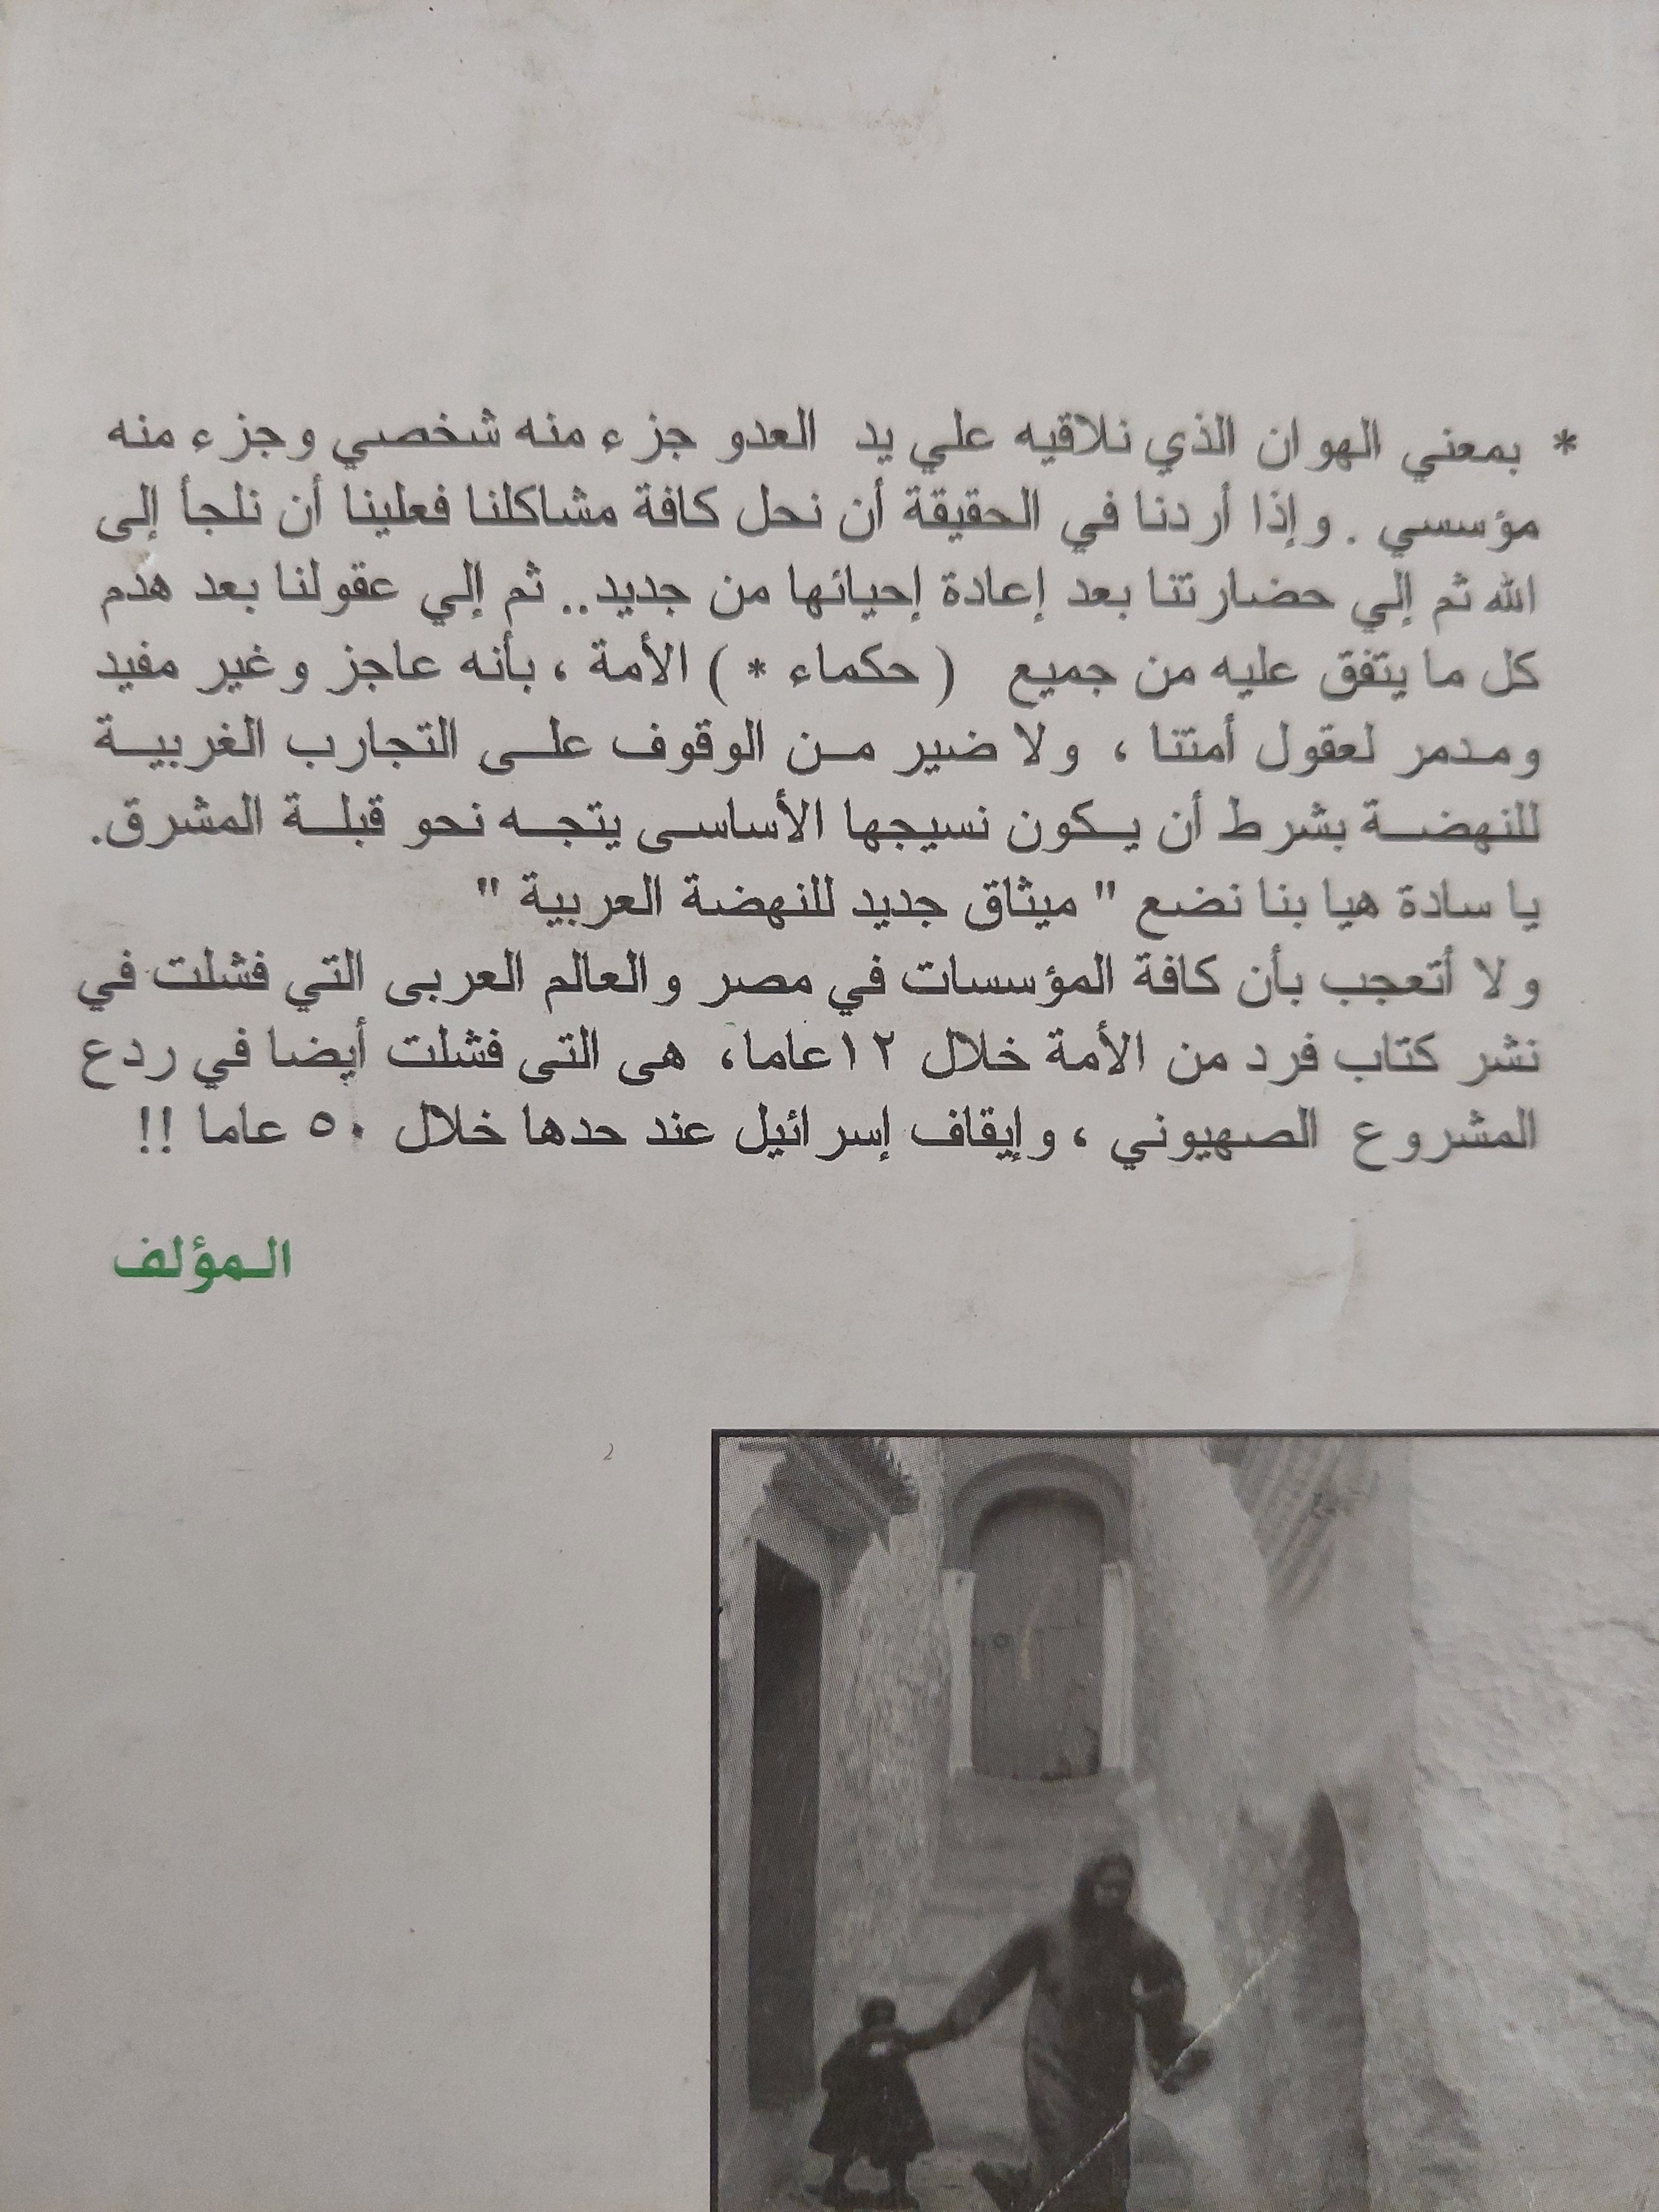 * بمعني الهوان الذي نلاقيه علي يد العدو جزء منه شخصي وجزء منه
مؤسسي . وإذا أردنا في الحقيقة أن نحل كافة مشاكلنا فعلينا أن نلجأ إلى
الله ثم إلي حضارتنا بعد إعادة إحيائها من جديد.. ثم إلي عقولنا بعد هدم
كل ما يتفق عليه من جميع ( حكماء * ) الأمة ، بأنه عاجز وغير مفيد
ومدمر لعقول أمتنا ، ولا ضير من الوقوف على التجارب الغربية
للنهضة بشرط أن يكون نسيجها الأساسى يتجه نحو قبلة المشرق.
يا سادة هيا بنا نضع " ميثاق جديد للنهضة العربية "
ولا أتعجب بأن كافة المؤسسات في مصر والعالم العربى التي فشلت في
نشر كتاب فرد من الأمة خلال ١٢عاما، هى التى فشلت أيضا في ردع
المشروع الصهيوني ، وإيقاف إسرائيل عند حدها خلال ٥٠ عاما !!
المؤلف